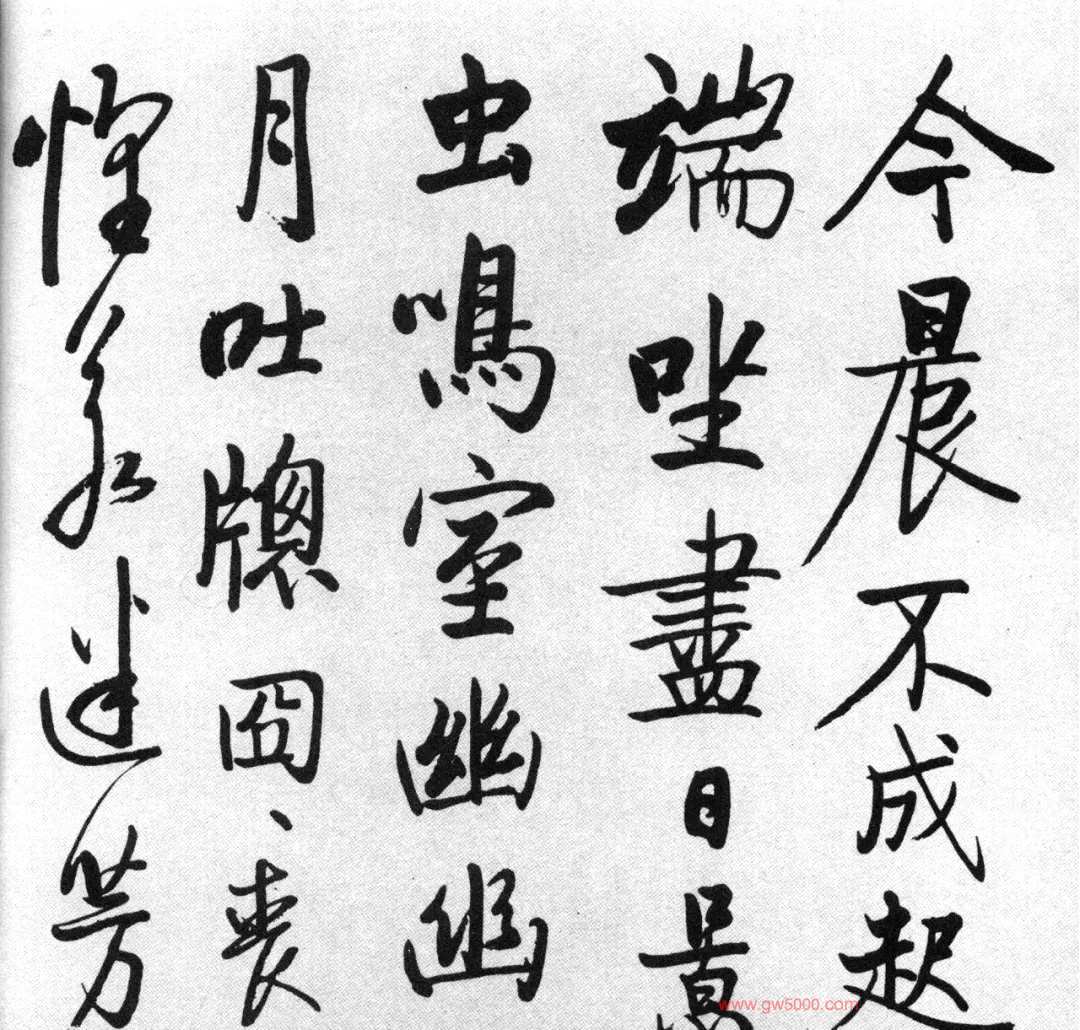 今晨不成起
端坐盡日景
虫鳴室幽幽
月吐牕囧、喪
懷若迷芳
www.gw5000.com